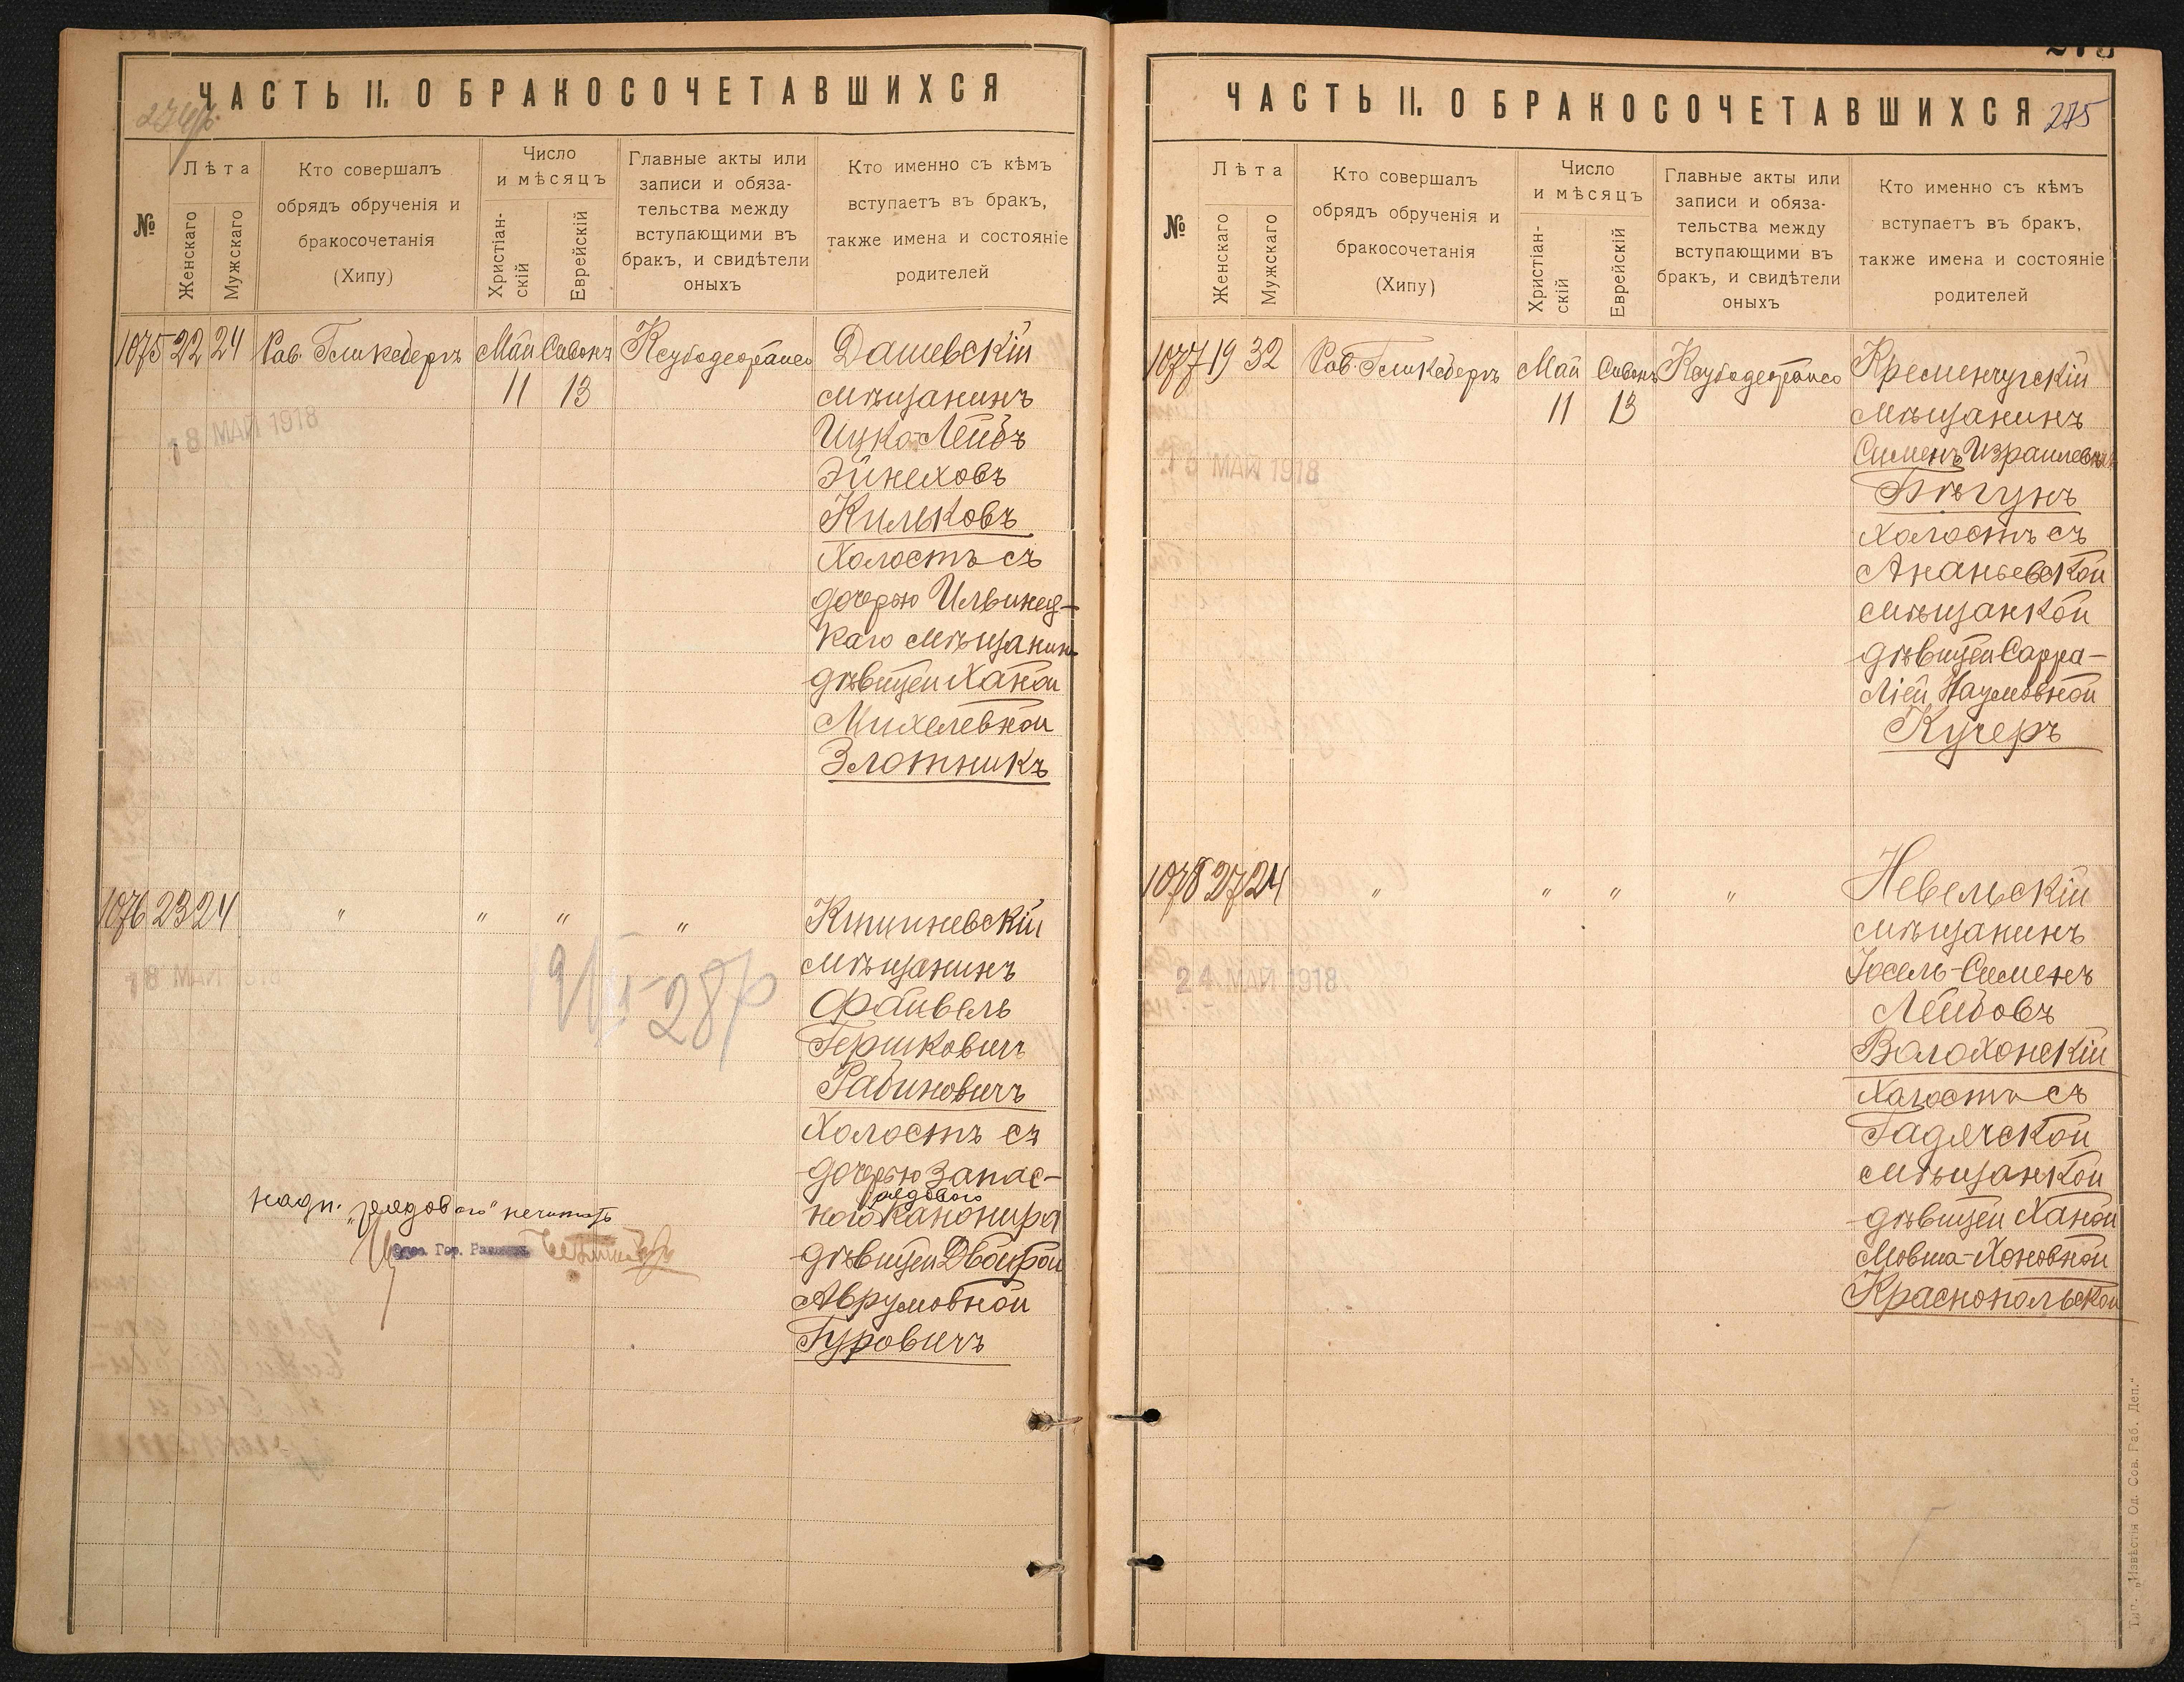 ЧАСТЬ II. О БРАКОСОЧЕТАВШИХСЯ
№
Лѣта
Женскаго
Мужскаго
Кто совершалъ
обрядъ обрученія и
бракосочетанія
(Хипу)
Число
и мѣсяцъ
Христіан-
скій
Еврейскій
Главные акты или
записи и обяза-
тельства между
вступающими въ
бракъ, и свидѣтели
оныхъ
Кто именно съ кѣмъ
вступаетъ въ бракъ,
также имена и состояніе
родителей
1075 22 24 Май Сивонъ Дашевскій
11 13 мѣщанинъ
18 МАЙ 1918
Ицко-Лейбъ
Эйнеховъ
Килковъ
Холостъ съ
дочерью Ильинец-
каго мѣщанина
дѣвицей Ханой
Михелевной
Злотникъ
1076 23 24 " " " " Кишиневскій
18 МАЙ 1918
мѣщанинъ
Файвель
Гершковичъ
Рабиновичъ
Холостъ съ
дочерью запас-
рядового
ного канонира
надп. „рядового" нечитать
дѣвицей Двойрой
Аврумовной
Гуровичъ
ЧАСТЬ II. О БРАКОСОЧЕТАВШИХСЯ 275
№
Лѣта
Женскаго
Мужскаго
Кто совершалъ
обрядъ обрученія и
бракосочетанія
(Хипу)
Число
и мѣсяцъ
Христіан-
скій
Еврейскій
Главные акты или
записи и обяза-
тельства между
вступающими въ
бракъ, и свидѣтели
оныхъ
Кто именно съ кѣмъ
вступаетъ въ бракъ,
также имена и состояніе
родителей
1077 19 32 Май Сивонъ Кременчугскій
11 13 мѣщанинъ
МАЙ 1918
Сименъ Израилевичъ
Бѣгунъ
Холостъ съ
Ананьевской
мѣщанкой
дѣвицей Сарра-
Ліей Наумовной
Кучеръ
1078 27 24 " " " " Невельскій
мѣщанинъ
24 МАЙ 1918
Іосель-Сименъ
Лейбовъ
Волохонскій
Холостъ съ
Гадячской
мѣщанкой
дѣвицей Ханой
Мовша-Хоновной
Краснопольской
Тип. „Извѣстія Од. Сов. Раб. Деп."